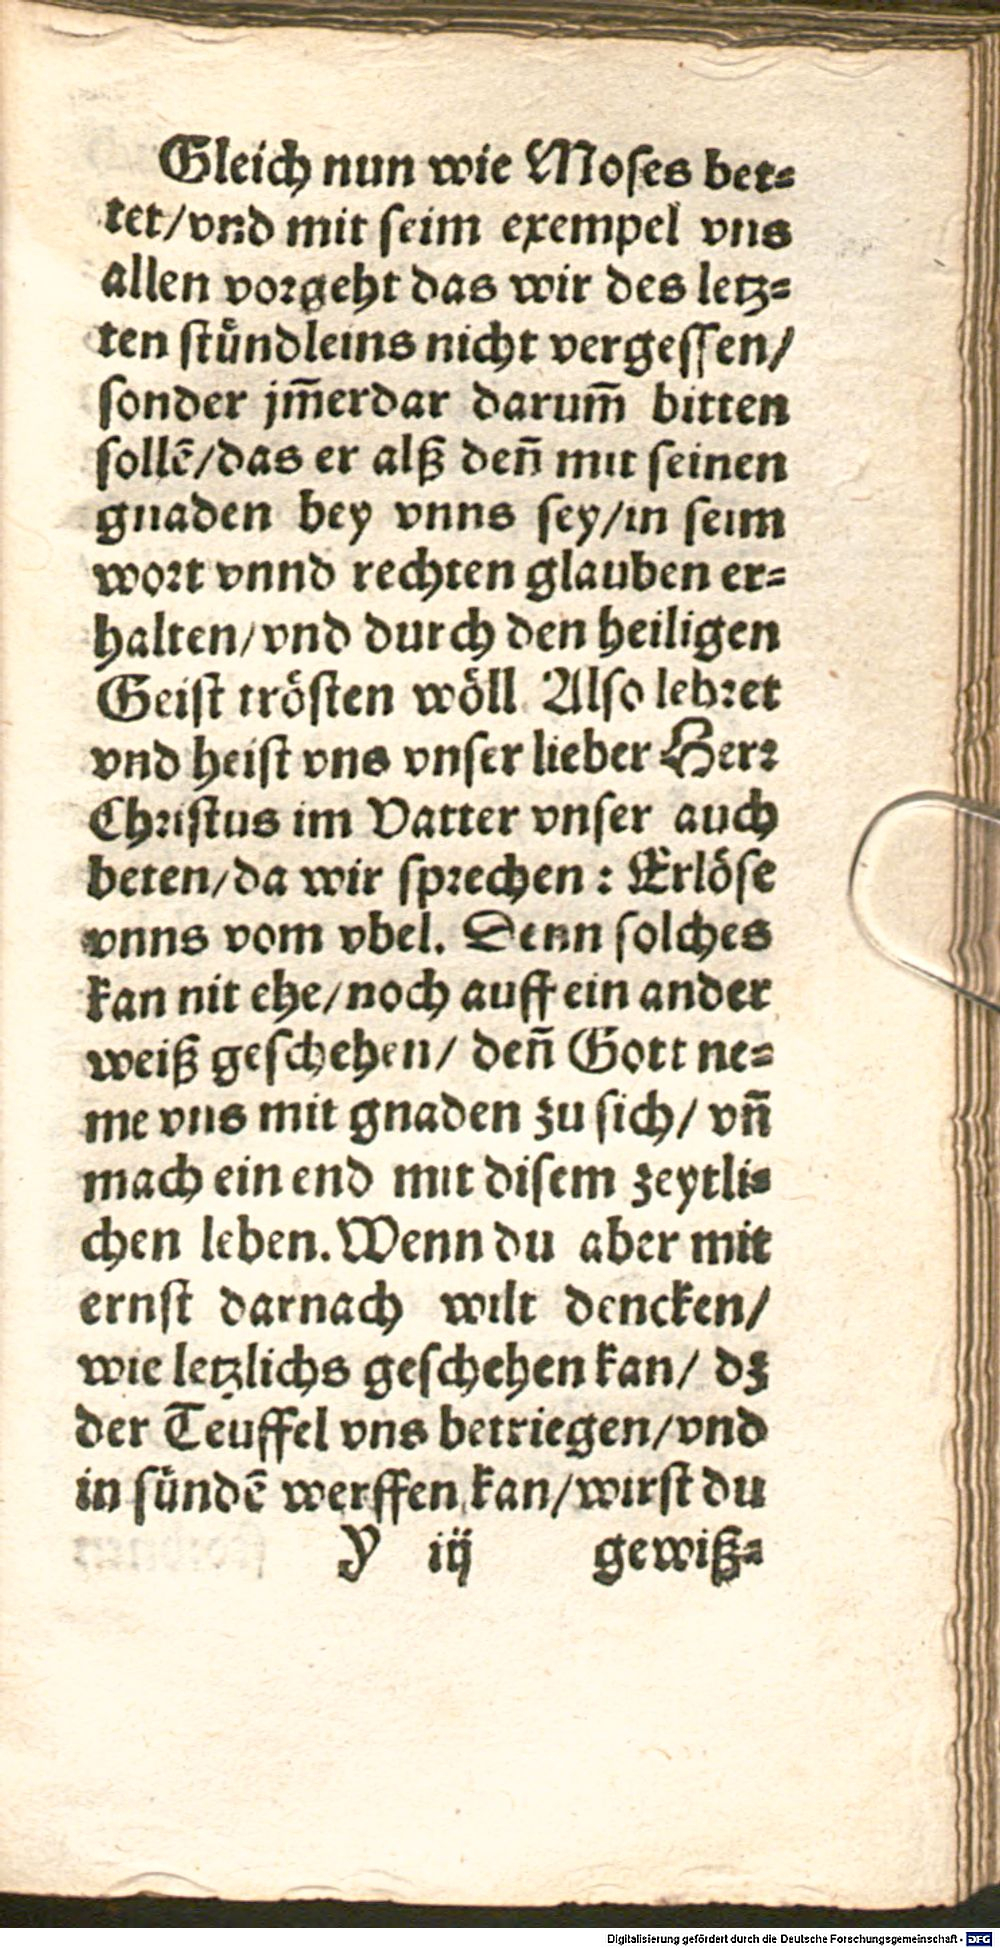 Gleich nun wie Moses bet⸗
tet/vnd mit seim exempel vns
allen vorgeht das wir des letz⸗
ten stuͤndleins nicht vergessen/
sonder jm̃erdar darum̃ bitten
sollẽ/das er alß deñ mit seinen
gnaden bey vnns sey/in seim
wort vnnd rechten glauben er⸗
halten/vnd durch den heiligen
Geist troͤsten woͤll. Also lehret
vnd heist vns vnser lieber Herr
Christus im Vatter vnser auch
beten/da wir sprechen: Erloͤse
vnns vom vbel. Denn solches
kan nit ehe/noch auff ein ander
weiß geschehen/ deñ Gott ne⸗
me vns mit gnaden zu sich/ vñ
mach ein end mit disem zeytli⸗
chen leben. Wenn du aber mit
ernst darnach wilt dencken/
wie letzlichs geschehen kan/ dz
der Teuffel vns betriegen/vnd
in suͤndẽ werffen kan/wirst du
Y iij gewiß⸗
Digitalisierung gefördert durch die Deutsche Forschungsgemeinschaft - DFG